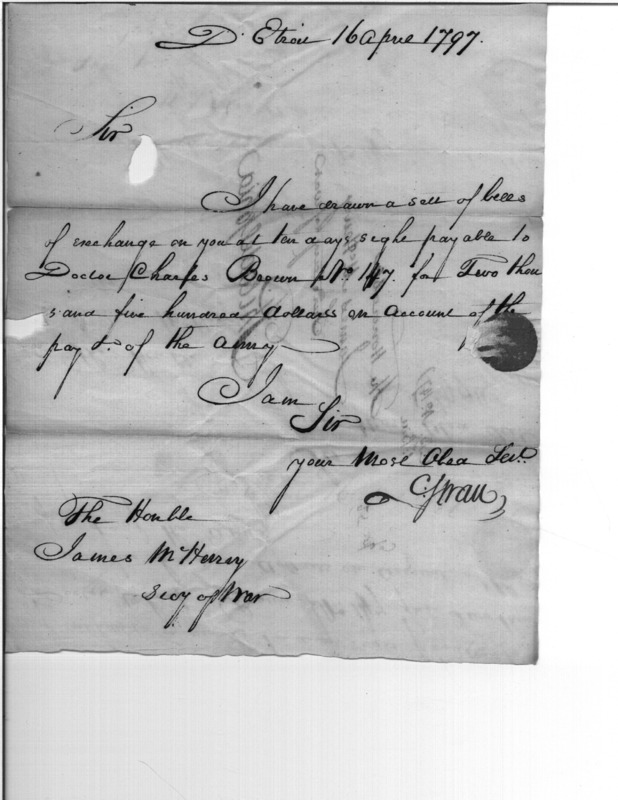 D. Etroit 16 April 1797.
Sir
I have drawn a sett of bills
of exchange on you at ten days sight payable to
Doctor Charles Brown No. 147. for Two thou
sand five hundred dollars on account of the
pay &c. of the army
I am
Sir
your Most Obed Servt.
C Swan
The Honble
James McHenry
Secy of War